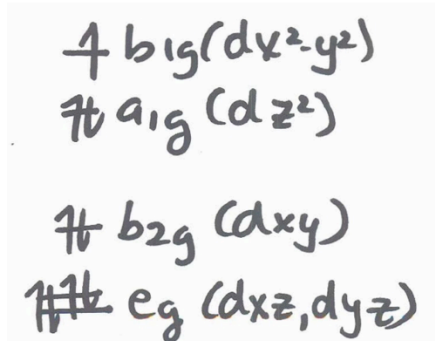 ↿ b1g(dx²-y²)
⥮ a1g (dz²)
⥮ b2g (dxy)
⥮⥮ eg (dxz,dyz)